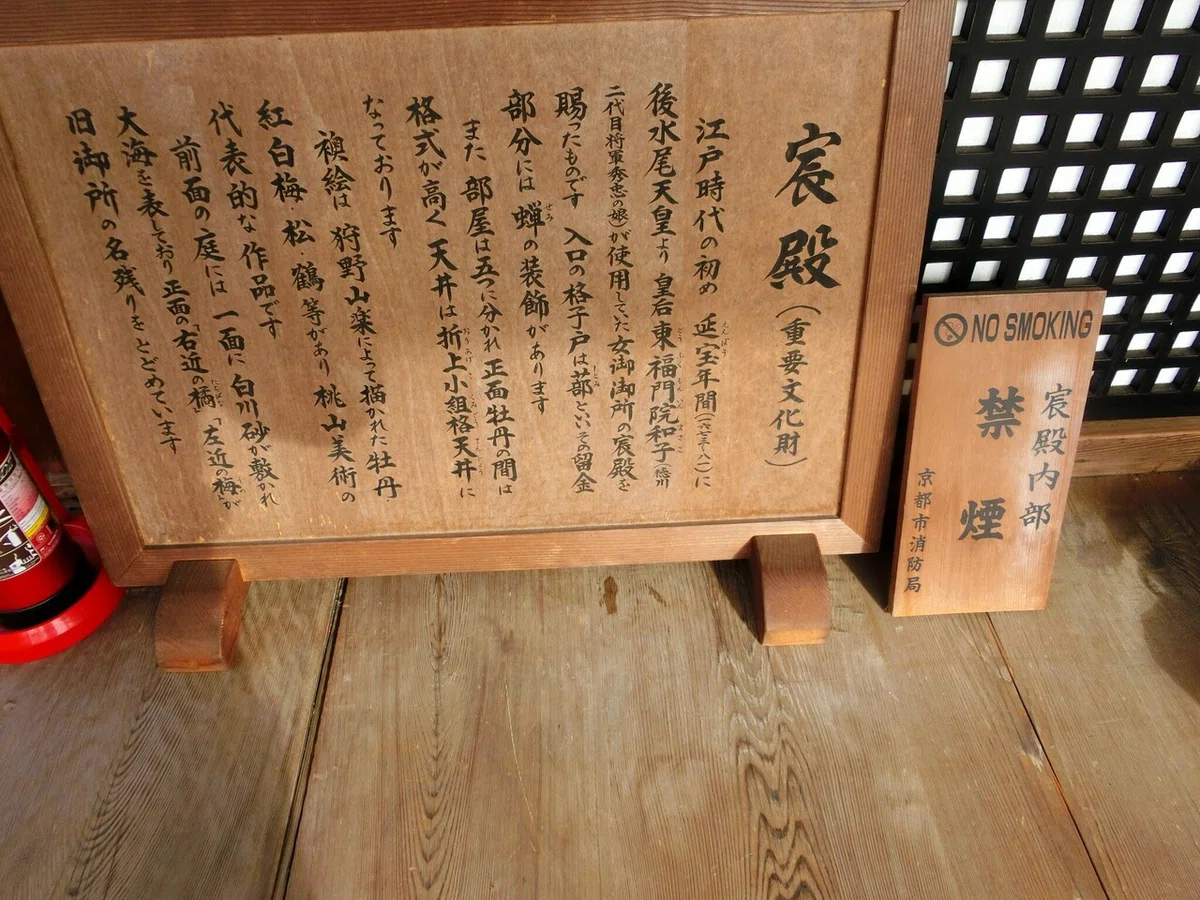 宸殿(重要文化財)
江戸時代の初め 延宝年間(一六七三〜八一)に
後水尾天皇より 皇后 東福門院和子(徳川
二代目将軍秀忠の娘)が使用していた女御御所の宸殿を
賜ったものです 入口の格子戸は蔀といいその留金
部分には 蝉の装飾があります
また 部屋は五つに分かれ 正面牡丹の間は
格式が高く 天井は折上小組格天井に
なっております
襖絵は 狩野山楽によって描かれた牡丹
紅白梅 松・鶴等があり 桃山美術の
代表的な作品です
前面の庭には 一面に白川砂が敷かれ
大海を表しており正面の「右近の橘」「左近の梅」が
旧御所の名残りをとどめています
NO SMOKING
宸殿内部
禁煙
京都市消防局